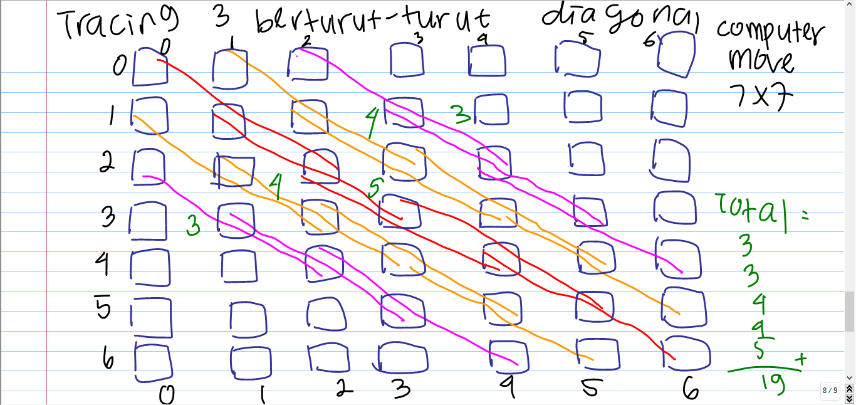 Tracing 3 berturut-turut diagonal
computer
move
7x7
0 1 2 3 4 5 6
0
1 4 3
2 4 5
3 3
4
5
6
0 1 2 3 4 5 6
Total =
3
3
4
4
5 +
19
8/9